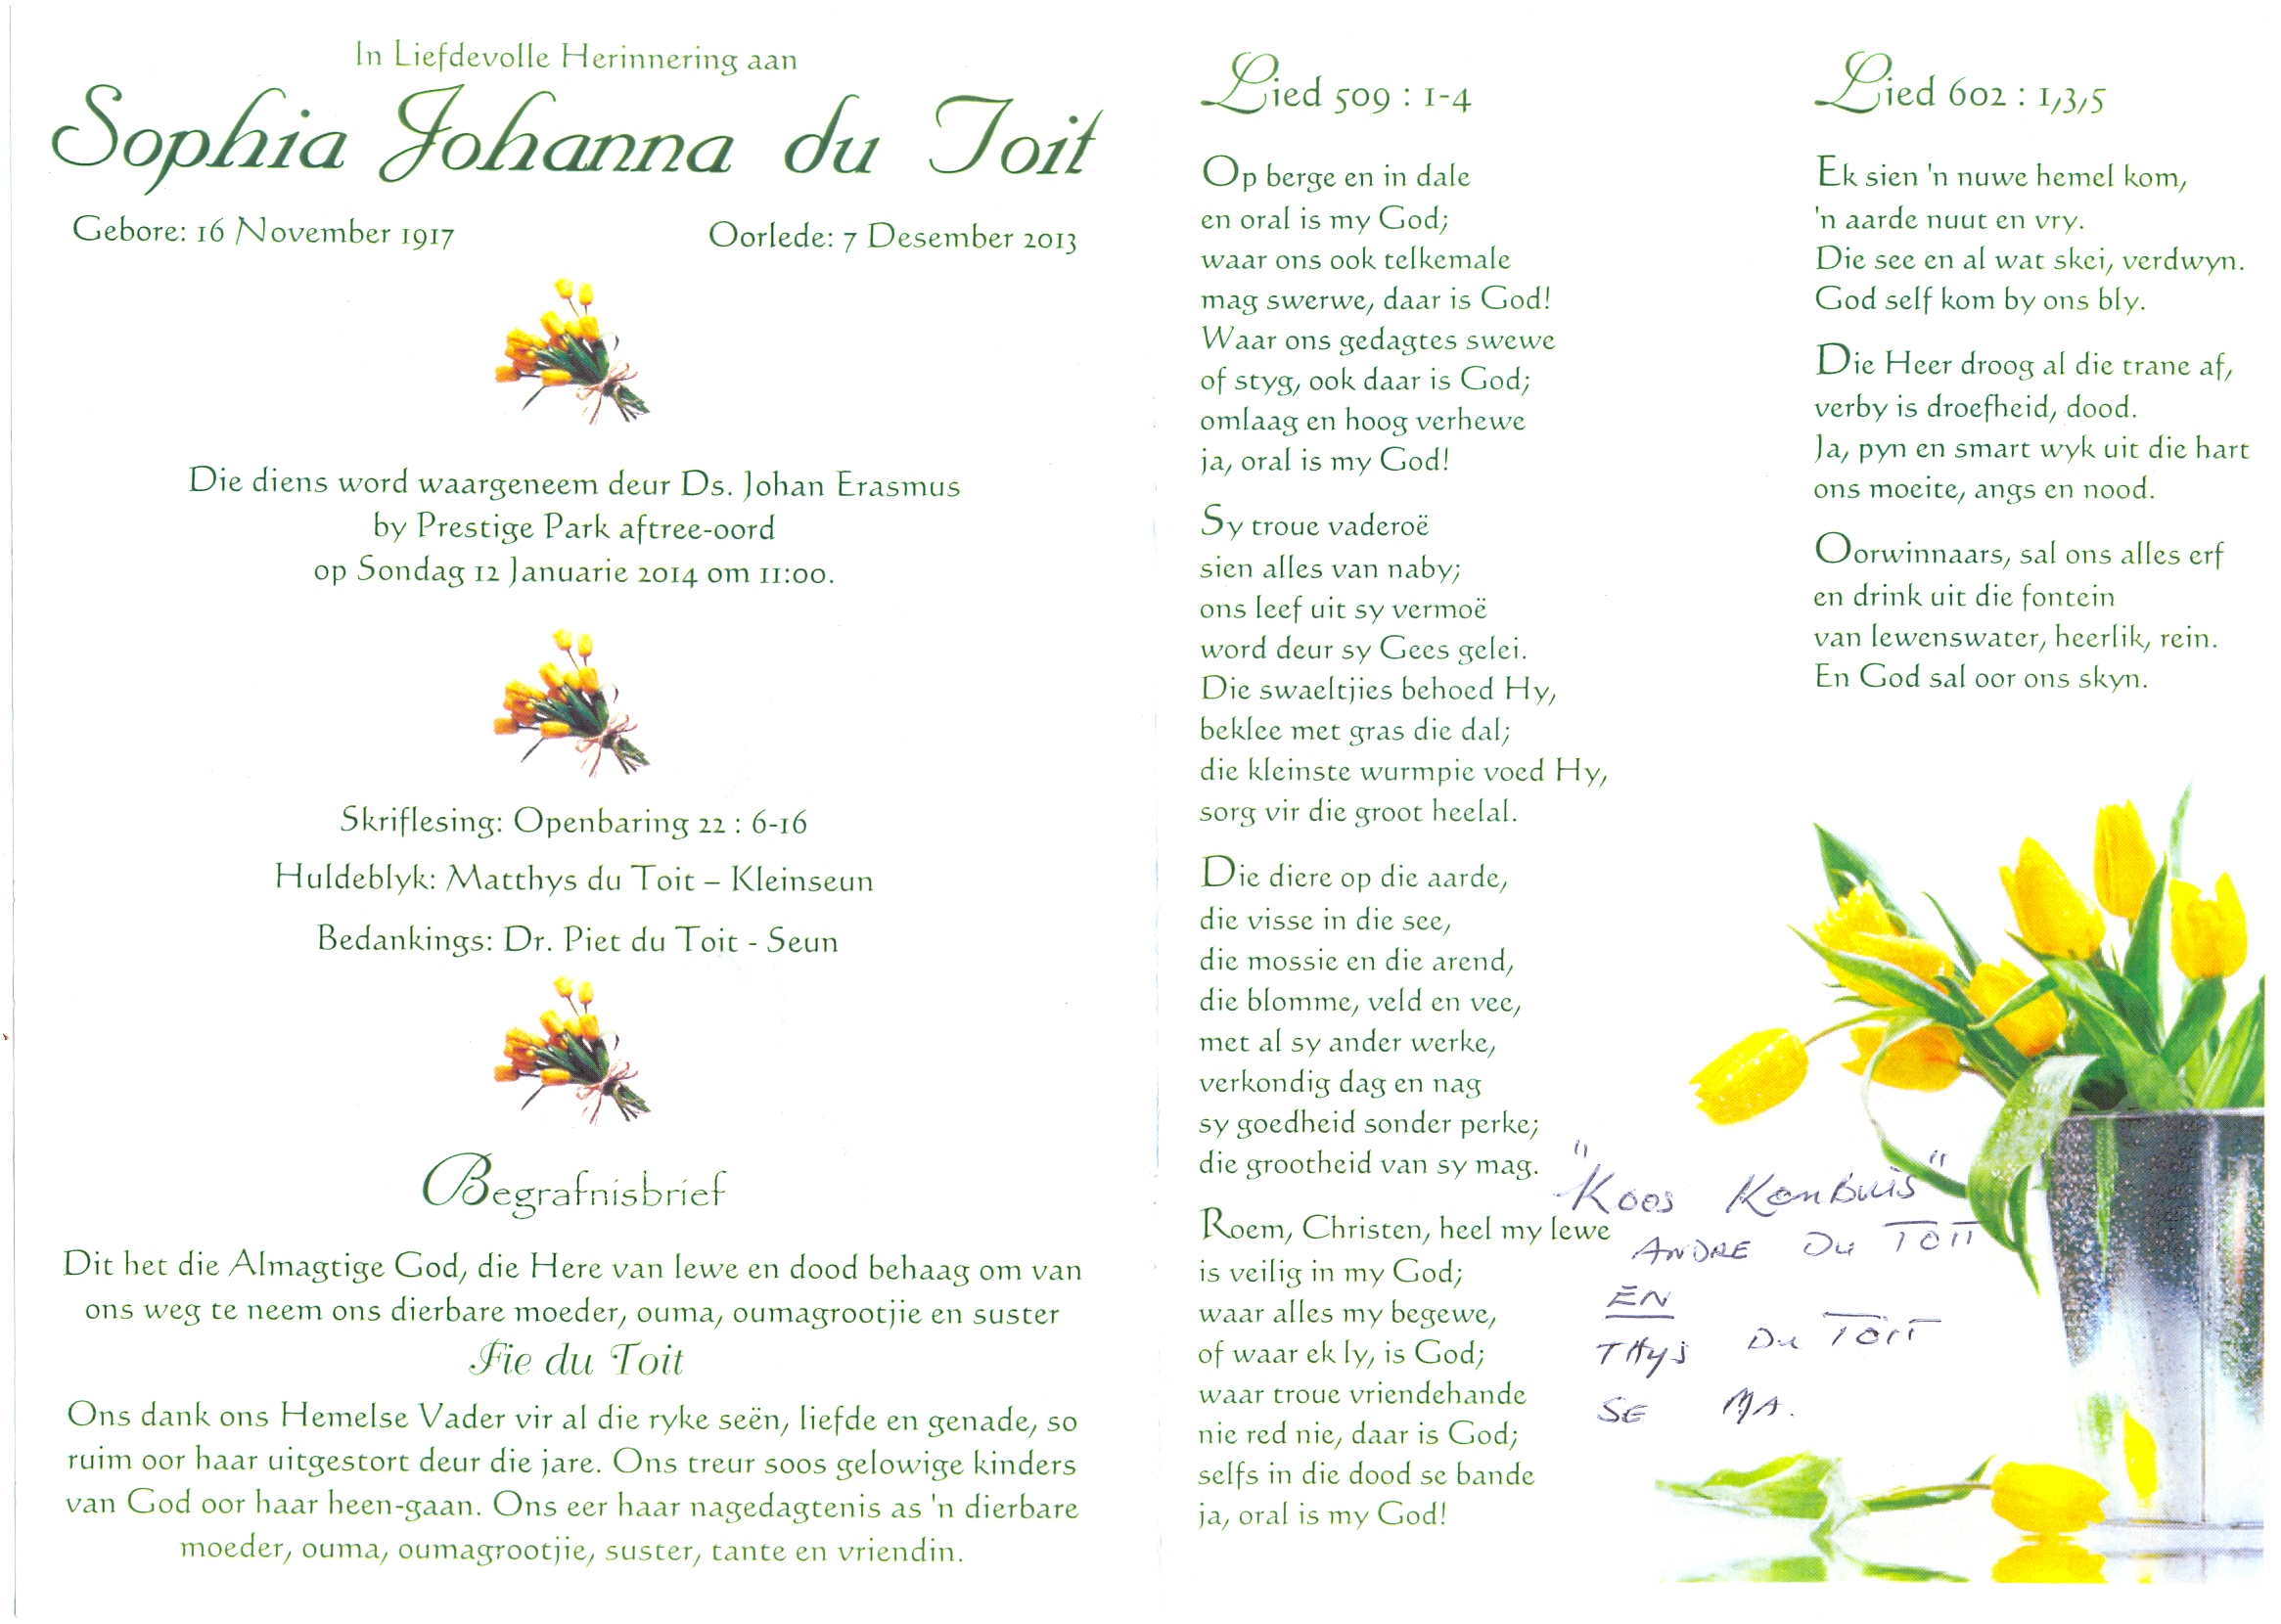 In Liefdevolle Herinnering aan
Sophia Johanna du Toit
Gebore: 16 November 1917 Oorlede: 7 Desember 2013
Die diens word waargeneem deur Ds. Johan Erasmus
by Prestige Park aftree-oord
op Sondag 12 Januarie 2014 om 11:00.
Skriflesing: Openbaring 22 : 6-16
Huldeblyk: Matthys du Toit – Kleinseun
Bedankings: Dr. Piet du Toit - Seun
Begrafnisbrief
Dit het die Almagtige God, die Here van lewe en dood behaag om van
ons weg te neem ons dierbare moeder, ouma, oumagrootjie en suster
Fie du Toit
Ons dank ons Hemelse Vader vir al die ryke seën, liefde en genade, so
ruim oor haar uitgestort deur die jare. Ons treur soos gelowige kinders
van God oor haar heen-gaan. Ons eer haar nagedagtenis as 'n dierbare
moeder, ouma, oumagrootjie, suster, tante en vriendin.
Lied 509 : 1-4
Op berge en in dale
en oral is my God;
waar ons ook telkemale
mag swerwe, daar is God!
Waar ons gedagtes swewe
of styg, ook daar is God;
omlaag en hoog verhewe
ja, oral is my God!
Sy troue vaderoë
sien alles van naby;
ons leef uit sy vermoë
word deur sy Gees gelei.
Die swaeltjies behoed Hy,
beklee met gras die dal;
die kleinste wurmpie voed Hy,
sorg vir die groot heelal.
Die diere op die aarde,
die visse in die see,
die mossie en die arend,
die blomme, veld en vee,
met al sy ander werke,
verkondig dag en nag
sy goedheid sonder perke;
die grootheid van sy mag.
Roem, Christen, heel my lewe
is veilig in my God;
waar alles my begewe,
of waar ek ly, is God;
waar troue vriendehande
nie red nie, daar is God;
selfs in die dood se bande
ja, oral is my God!
Lied 602 : 1,3,5
Ek sien 'n nuwe hemel kom,
'n aarde nuut en vry.
Die see en al wat skei, verdwyn.
God self kom by ons bly.
Die Heer droog al die trane af,
verby is droefheid, dood.
Ja, pyn en smart wyk uit die hart
ons moeite, angs en nood.
Oorwinnaars, sal ons alles erf
en drink uit die fontein
van lewenswater, heerlik, rein.
En God sal oor ons skyn.
"Koos Kombuis"
ANDRE DU TOIT
EN
THYS DU TOIT
SE MA.